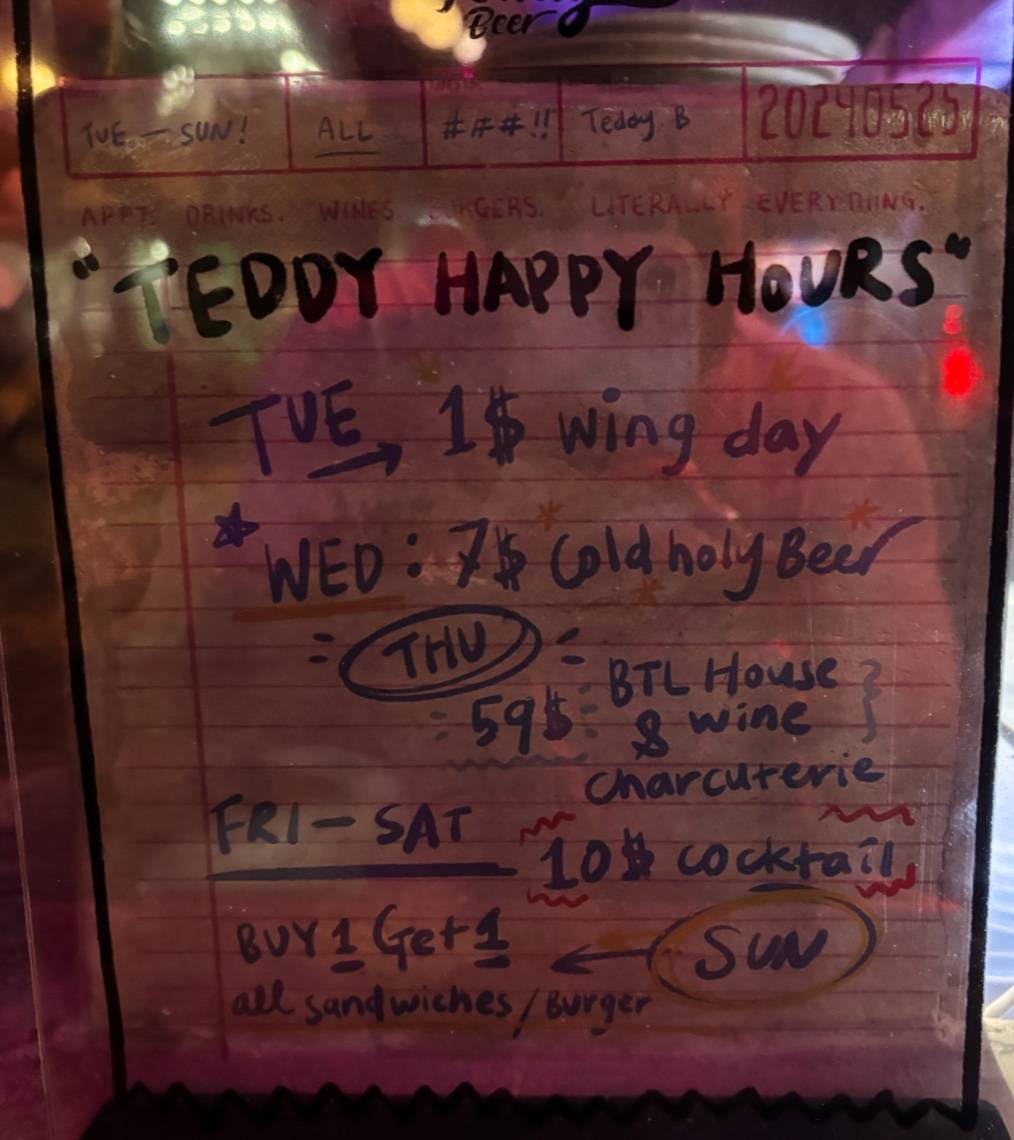 Beer
TUE — SUN! ALL ###!! Teddy B 20240525
APPT. DRINKS. WINES. BURGERS. LITERALLY EVERYTHING.
"TEDDY HAPPY HOURS"
TUE → 1$ wing day
WED: 7$ Cold holy Beer
THU
59$ BTL House
& wine
charcuterie
FRI — SAT
10$ cocktail
BUY 1 Get 1 ← SUN
all sandwiches / Burger